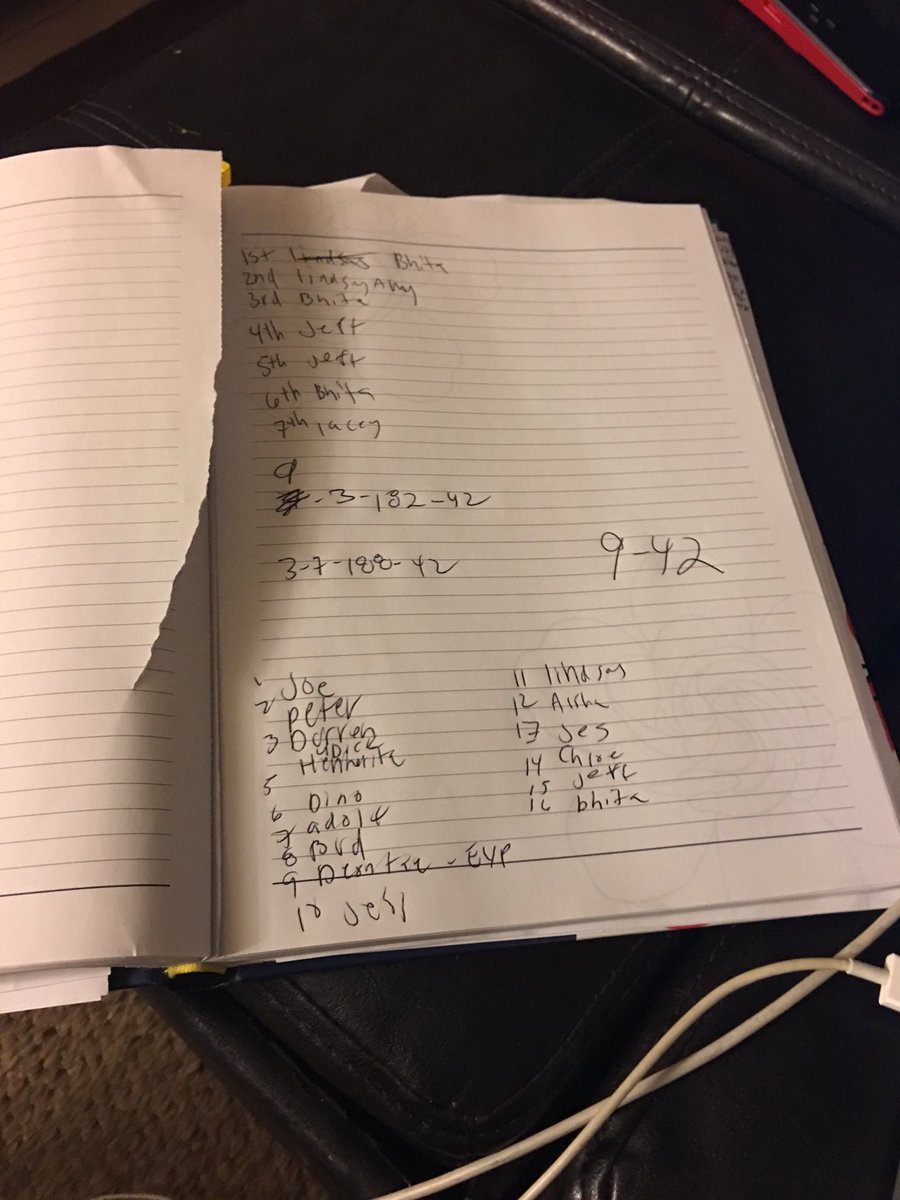 1st Bhita
2nd lindsyAny
3rd Bhita
4th Jeff
5th Jeff
6th Bhita
7th lacey
9
-3-182-42
3-7-188-42
9-42
1 Joe
2 Peter
3 Darren
Dick
Henhorita
5
6 Dino
7 adolf
8 Brd
9 - EVP
10 Jeff
11 lindsay
12 Aisha
13 Jes
14 Chloe
15 Jeff
16 bhita